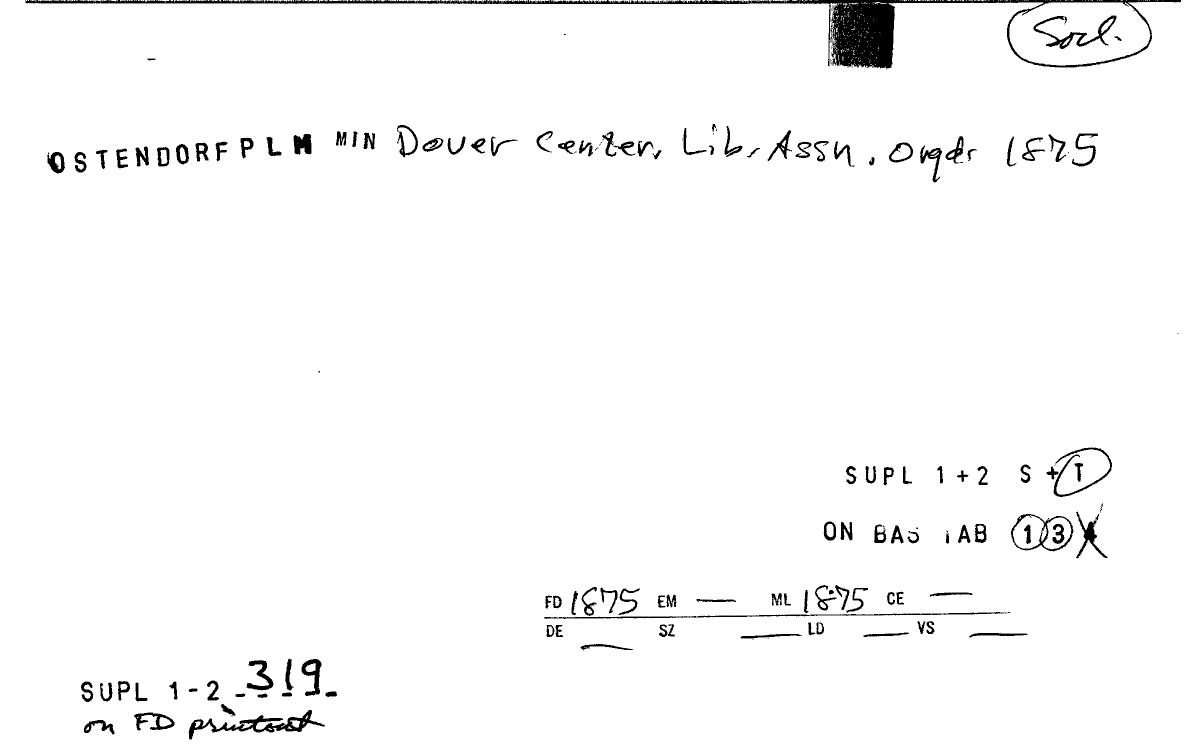 Socl.
OSTENDORF P L M MIN Dover Center, Lib. Assn. Orgdr 1875
SUPL 1+2 S + T
ON BAS TAB 1 3
FD 1875 EM — ML 1875 CE —
DE — SZ — LD — VS —
SUPL 1-2 - 319 -
on FD printout